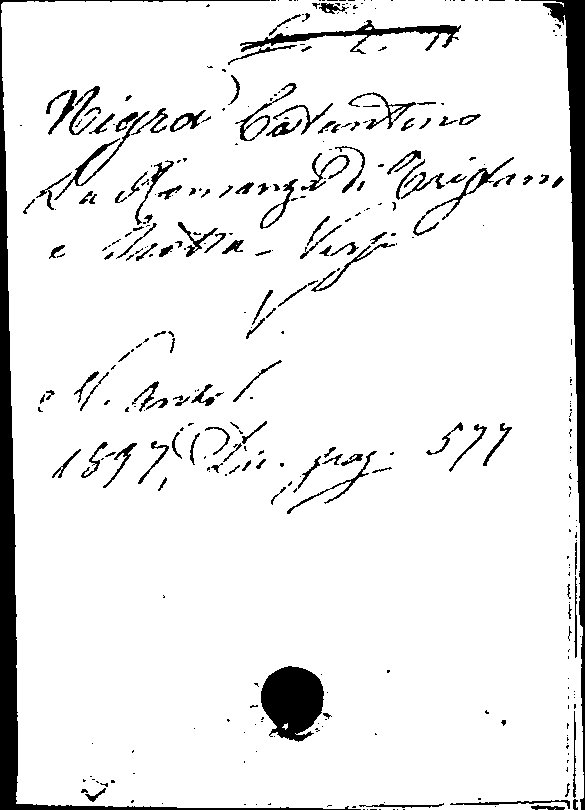 Nigra Costantino
La Romanza di Tristano
e Isotta - Versi
V.
N. Antol.
1897, Dic. pag. 577